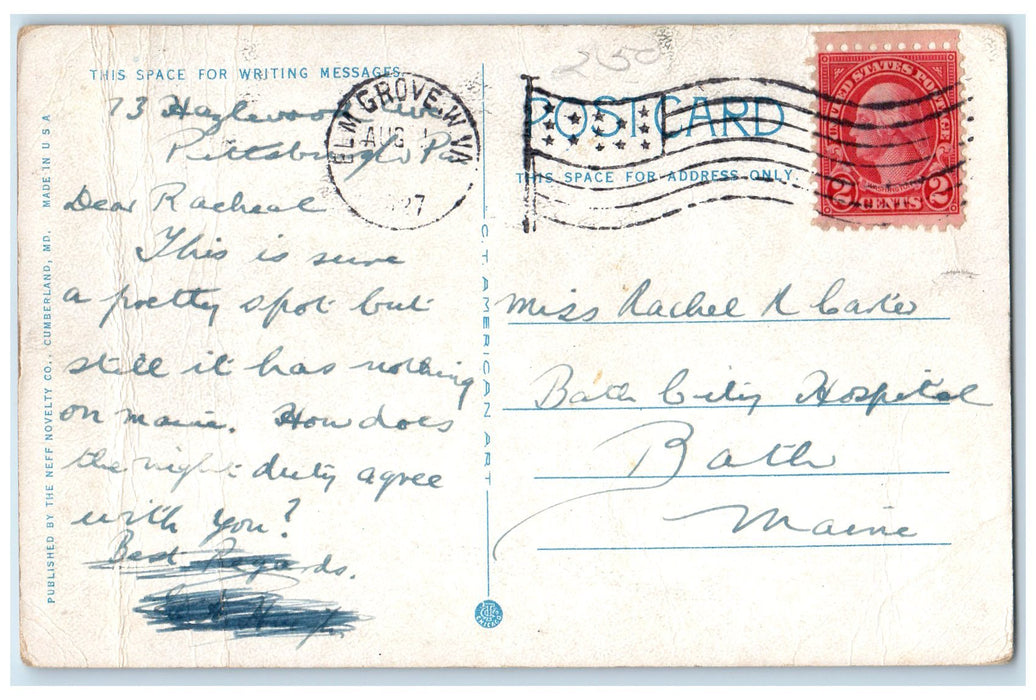 THIS SPACE FOR WRITING MESSAGES
73 Hazlewood Ave
Pittsburgh Pa
Dear Racheal
This is sure
a pretty spot but
still it has nothing
on maine. How does
the night duty agree
with you?
Best Regards.
PUBLISHED BY THE NEFF NOVELTY CO., CUMBERLAND, MD. MADE IN U S A
C. T. AMERICAN ART
ELM GROVE, W. VA
AUG 1
27
250
POST CARD
THIS SPACE FOR ADDRESS ONLY
UNITED STATES POSTAGE
WASHINGTON
2 CENTS 2
Miss Rachel R Carter
Bath City Hospital
Bath
Maine
CHICAGO